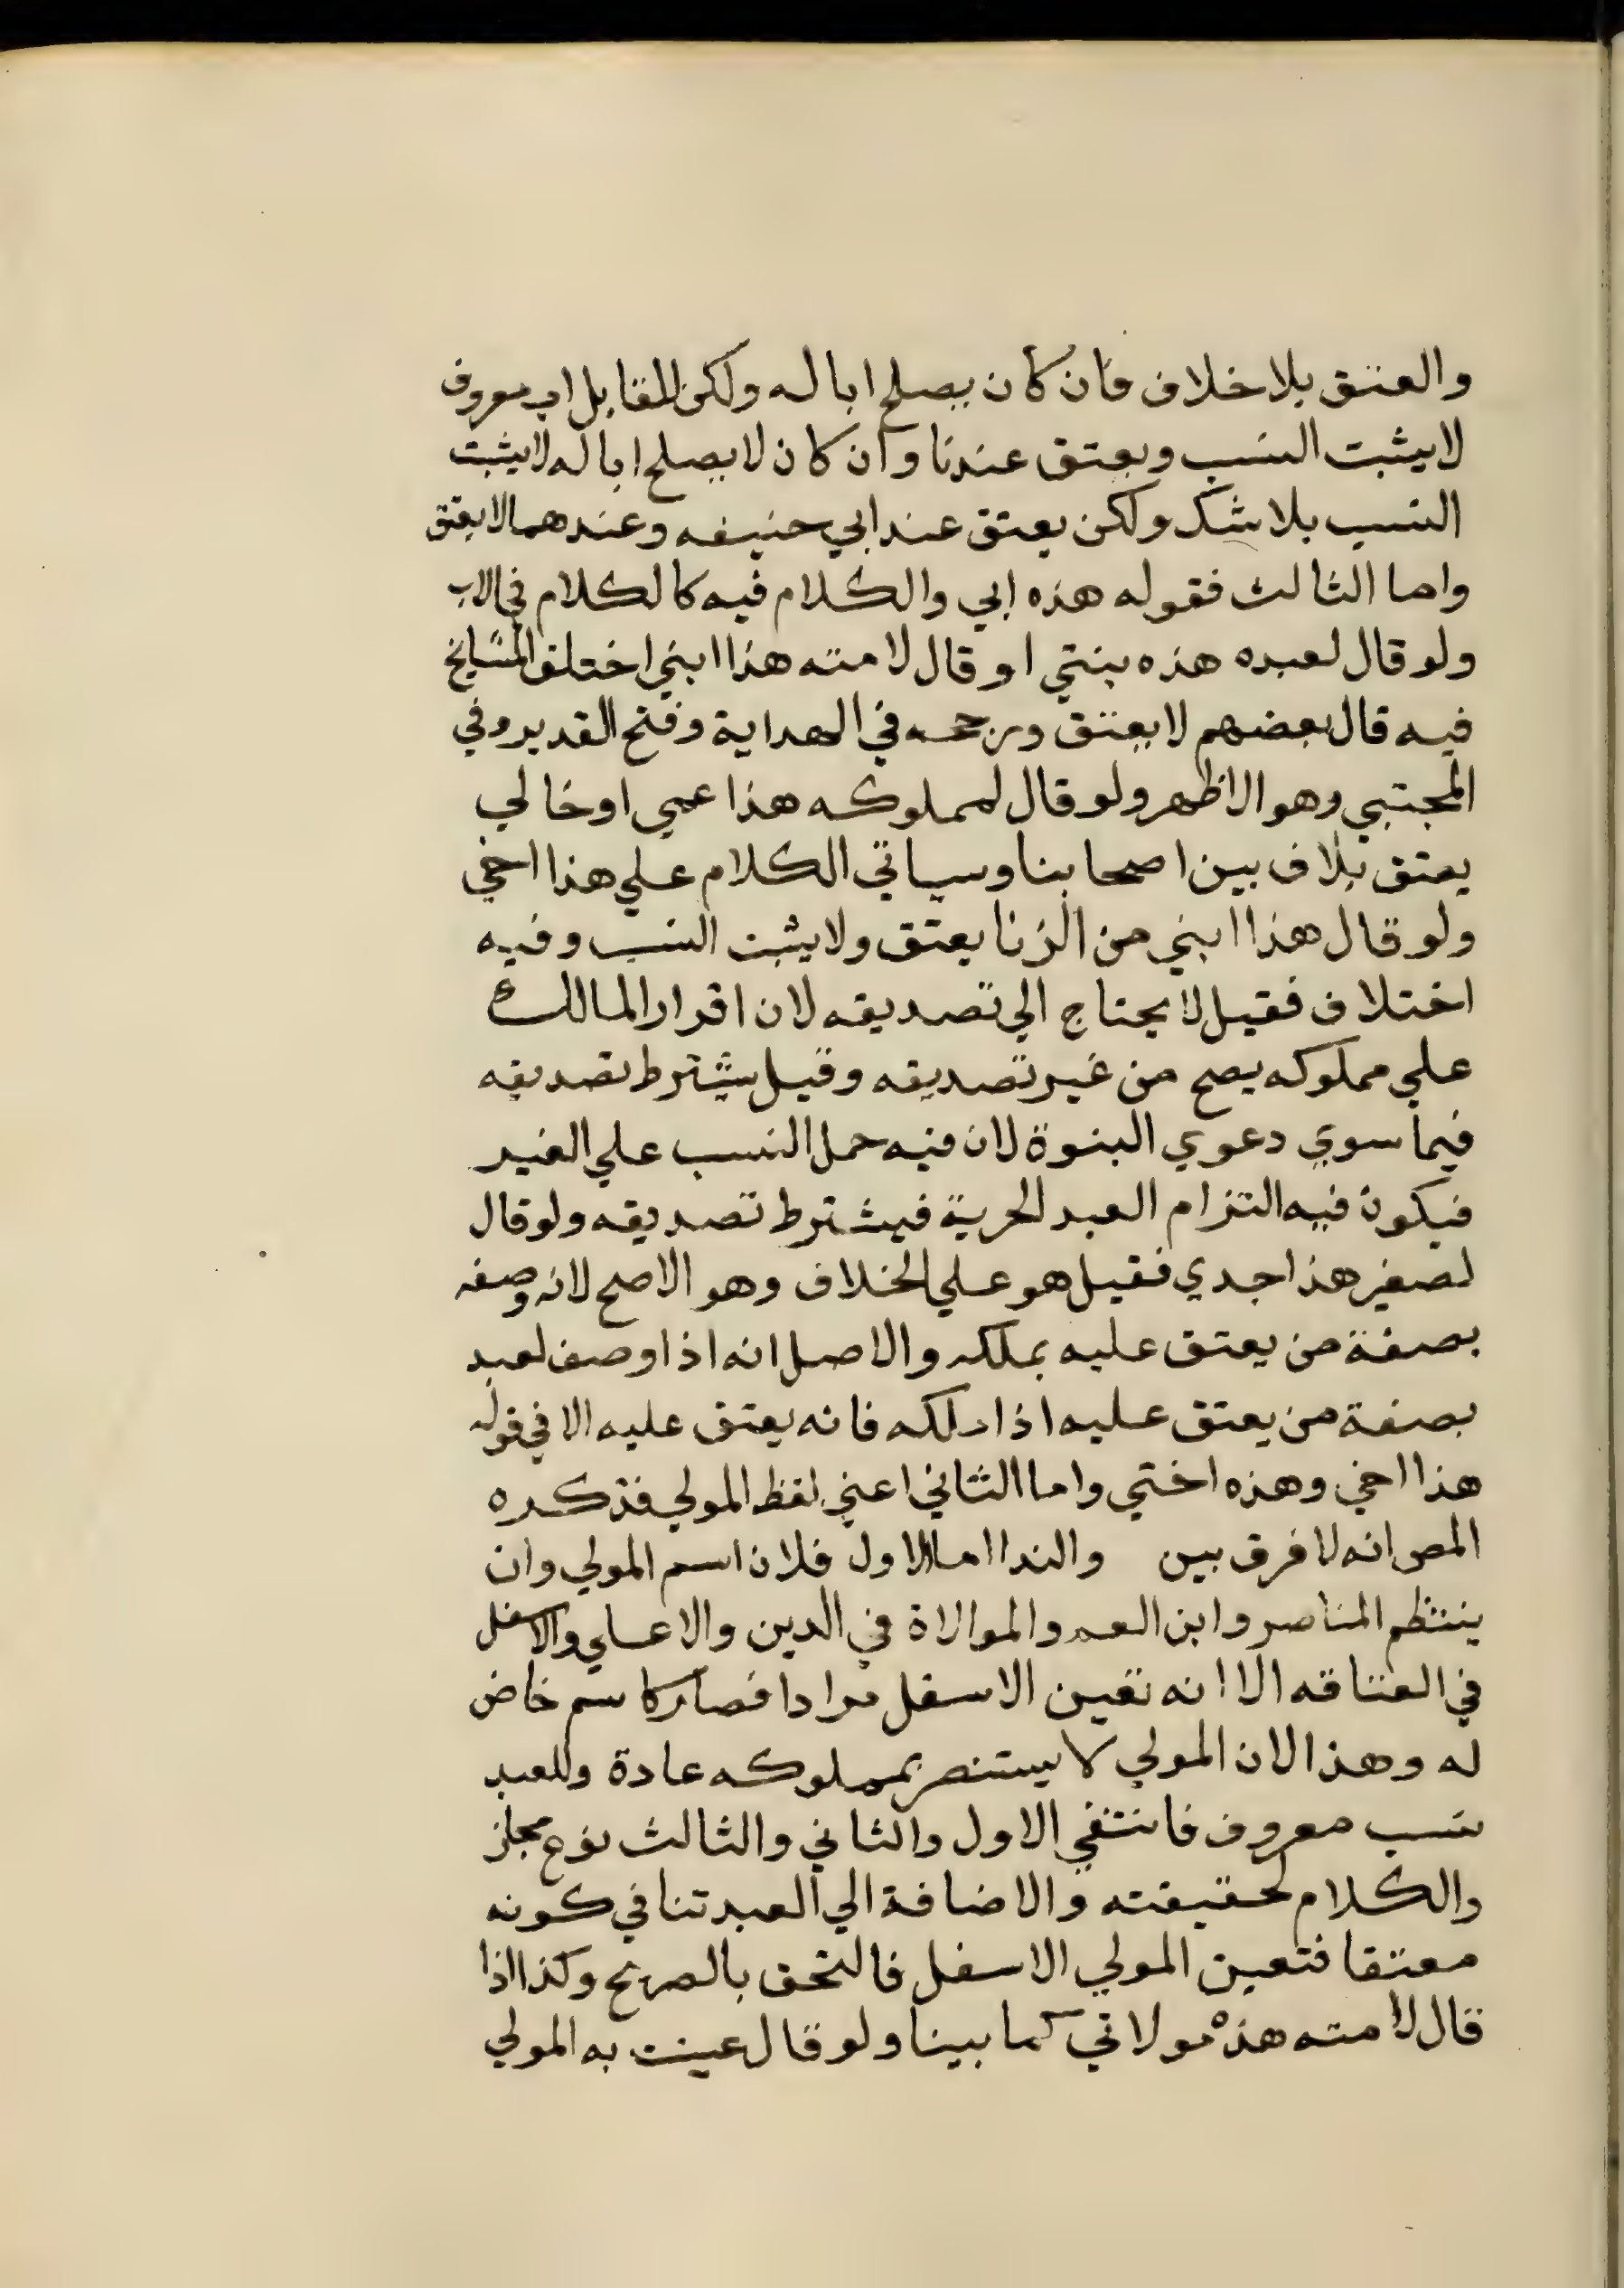 والعتق بلا خلاف فان كان يصلح ابا له ولكن للقايل اب معروف
لا يثبت النسب ويعتق عندنا وان كان لا يصلح ابا له لا يثبت
النسب بلا شك ولكن يعتق عند ابي حنيفه وعندهما لا يعتق
واما الثالث فقوله هذه ابي والكلام فيه كالكلام في الاب
ولو قال لعبده هذه بنتي او قال لامته هذا ابني اختلف المشايخ
فيه قال بعضهم لا يعتق ورجحه في الهداية وفتح القدير وفي
المجتبي وهو الاظهر ولو قال لمملوكه هذا عمي او خالي
يعتق بلاف بين اصحابنا وسياتي الكلام علي هذا اخي
ولو قال هذا ابني من الزنا يعتق ولا يثبت النسب وفيه
اختلاف فقيل لا يحتاج الي تصديقه لان اقرار المالك
علي مملوكه يصح من غير تصديقه وقيل يشترط تصديقه
فيما سوي دعوي البنوة لان فيه حمل النسب علي الغير
فيكون فيه التزام العبد الحرية فيشترط تصديقه ولو قال
لصغير هذا جدي فقيل هو علي الخلاف وهو الاصح لانه وصفه
بصفة من يعتق عليه بملكه والاصل انه اذا وصف لعبد
بصفة من يعتق عليه اذا ملكه فانه يعتق عليه الا في قوله
هذا اخي وهذه اختي واما الثاني اعني لفظ المولي فذكره
المص انه لا فرق بين والندا اما الاول فلان اسم المولي وان
ينتظم المناصر وابن العم والموالاة في الدين والاعلي والاسفل
في العتاقه الا انه تعين الاسفل مرادا فصار كاسم خاص
له وهذا لان المولي لا يستنصر بمملوكه عادة وللعبد
نسب معروف فانتفي الاول والثاني والثالث نوع مجاز
والكلام لحقيقته والاضافة الي العبد تنافي كونه
معتقا فتعين المولي الاسفل فالتحق بالصريح وكذا اذا
قال لامته هذه مولاتي كما بينا ولو قال عينت به المولي